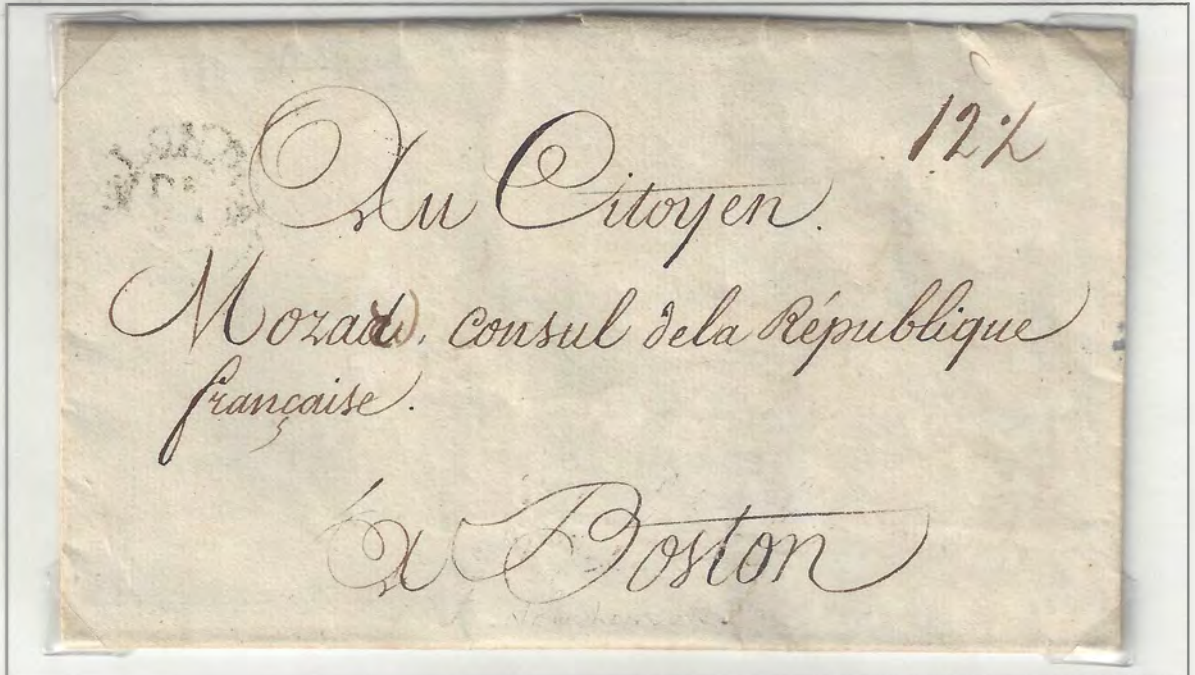 12 1/2
Au Citoyen.
consul dela République
française.
à Boston